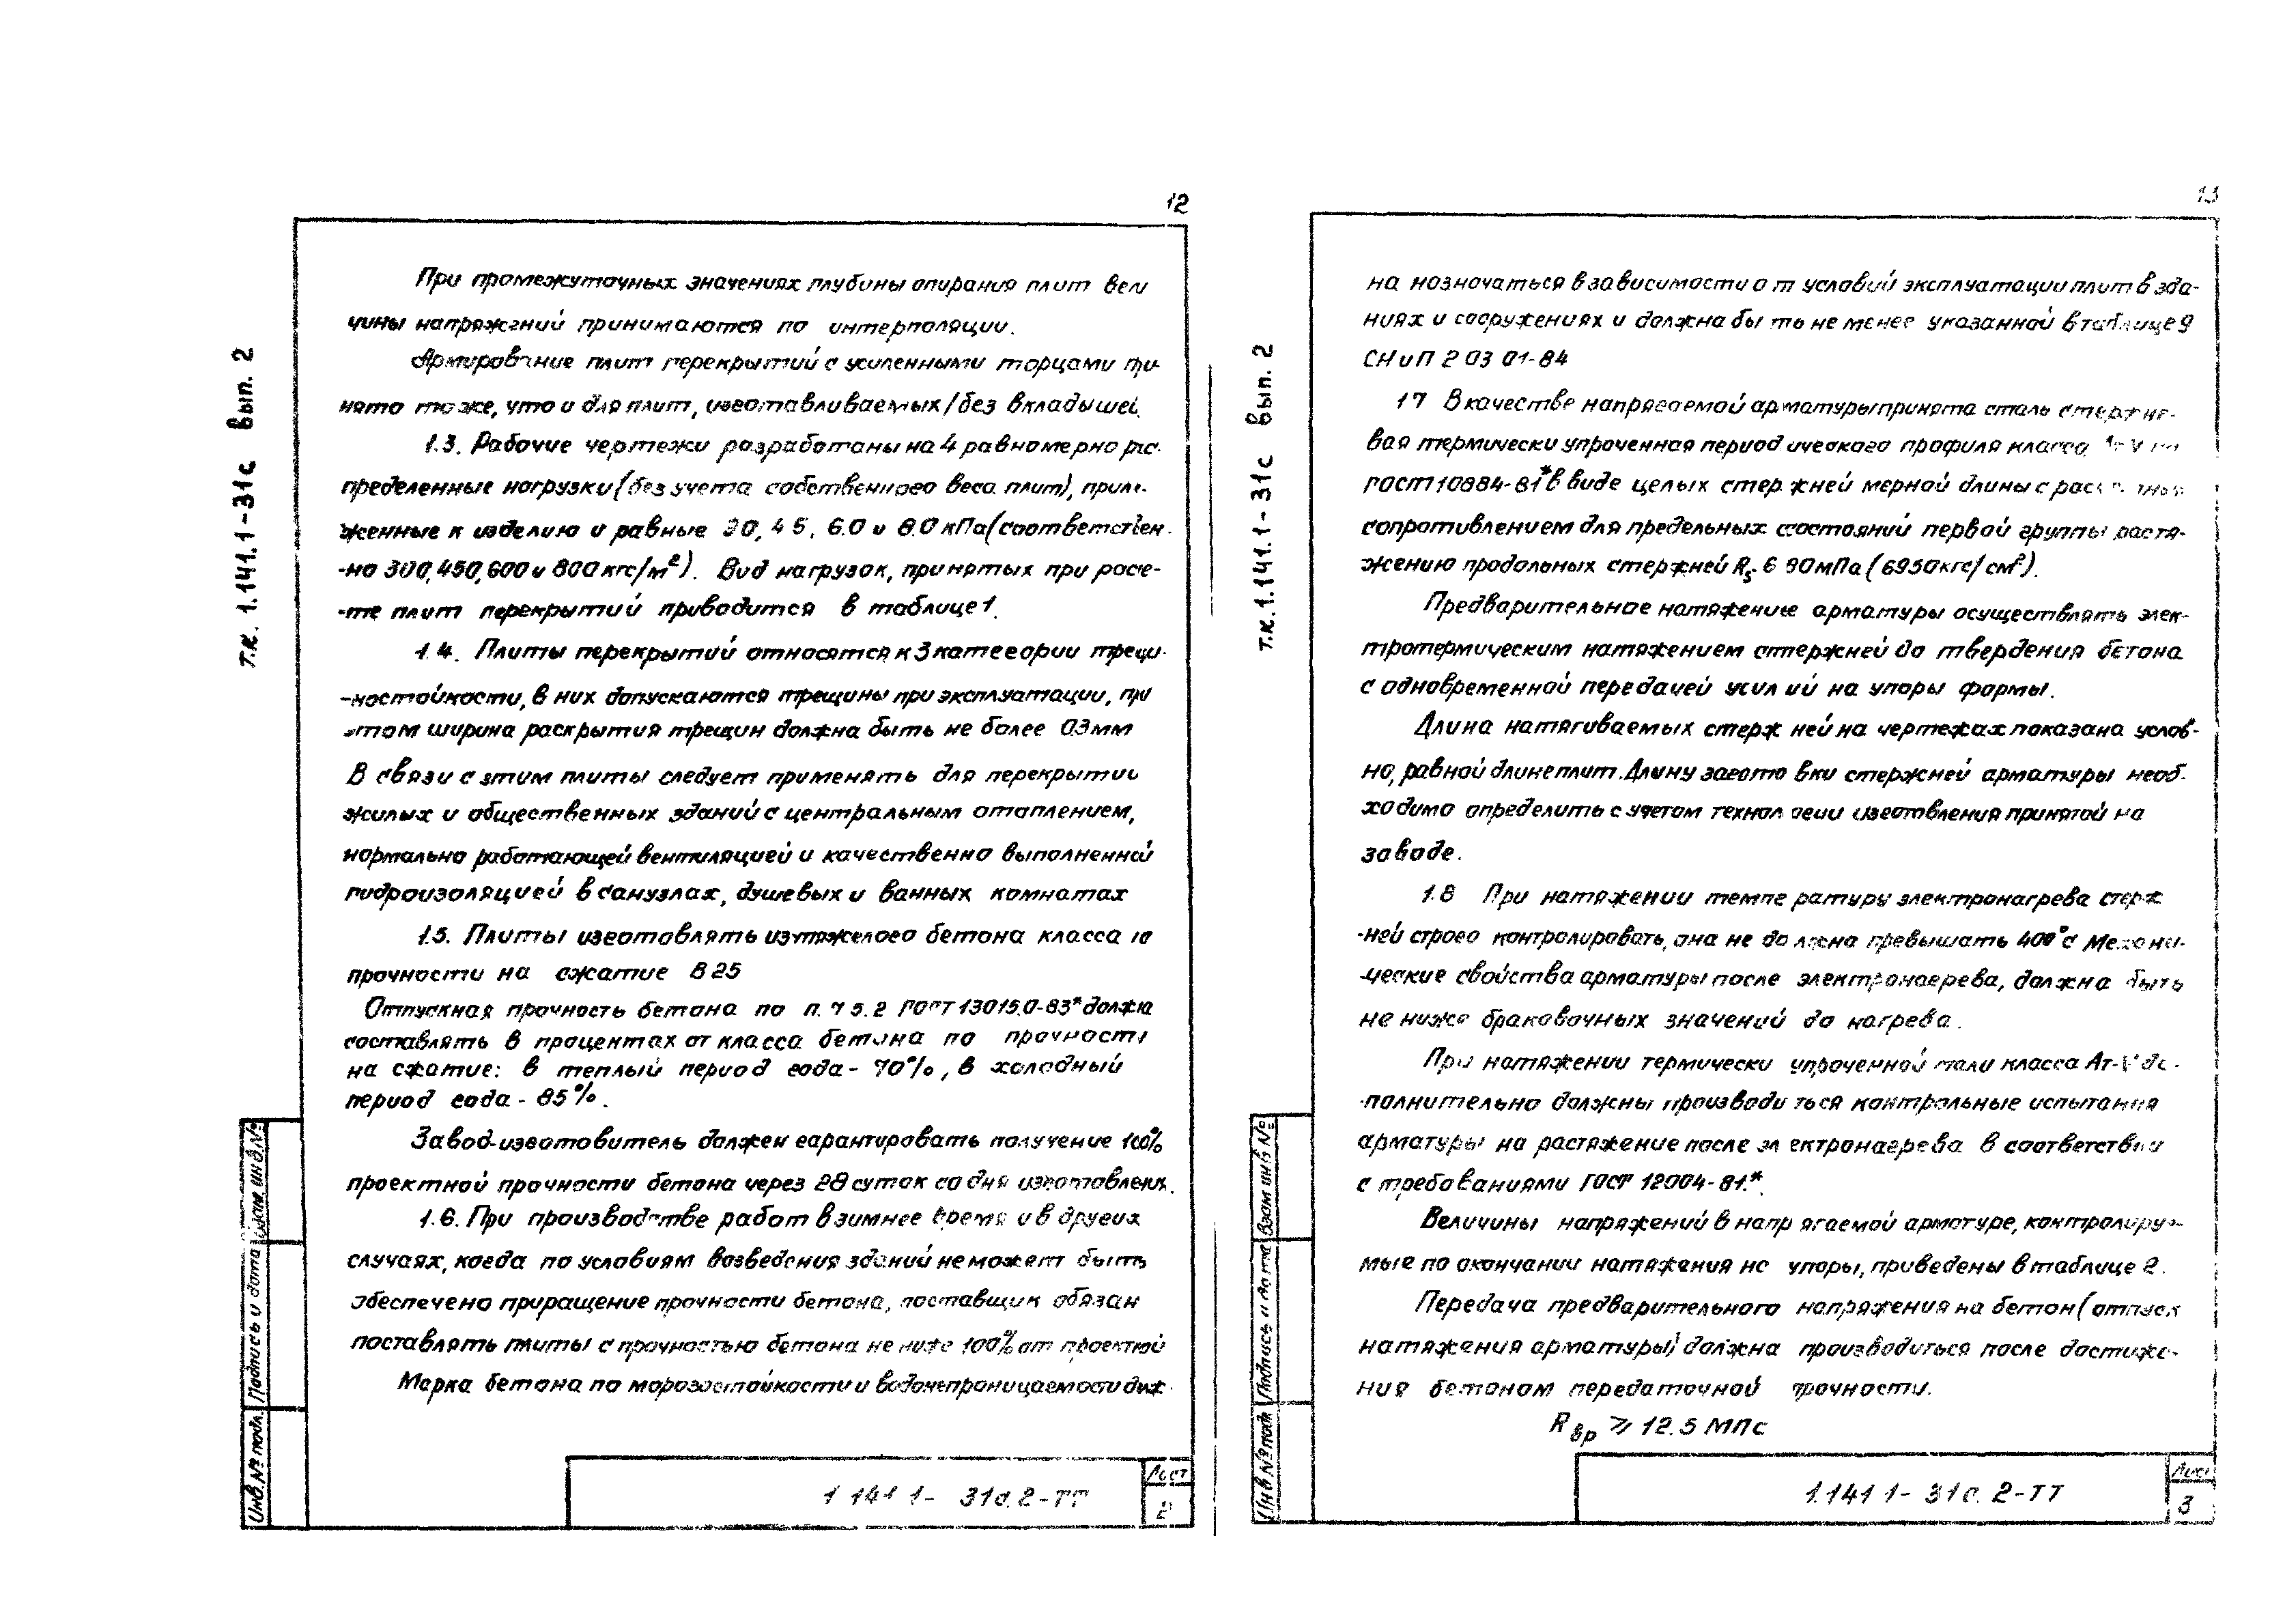 12
При промежуточных значениях глубины опирания плит вели
чины напряжений принимаются по интерполяции.
Армирование плит перекрытий с усиленными торцами при-
нято то же, что и для плит, изготавливаемых/без вкладышей.
1.3. Рабочие чертежи разработаны на 4 равномерно рас-
пределенные нагрузки (без учета собственного веса плит), прило-
женные к изделию и равные 3.0, 4.5, 6.0 и 8.0 кПа (соответствен-
-но 300, 450, 600 и 800 кгс/м²). Вид нагрузок, принятых при расче-
-те плит перекрытий приводится в таблице 1.
1.4. Плиты перекрытий относятся к 3 категории трещи-
-ностойкости, в них допускаются трещины при эксплуатации, при
этом ширина раскрытия трещин должна быть не более 0.3 мм
В связи с этим плиты следует применять для перекрытий
жилых и общественных зданий с центральным отоплением,
нормально работающей вентиляцией и качественно выполненной
гидроизоляцией в санузлах, душевых и ванных комнатах
1.5. Плиты изготовлять из тяжелого бетона класса по
прочности на сжатие В 25
Отпускная прочность бетона по п. 1.5.2 ГОСТ 13015.0-83* должна
составлять в процентах от класса бетона по прочности
на сжатие: в теплый период года - 70%, в холодный
период года - 85%.
Завод-изготовитель должен гарантировать получение 100%
проектной прочности бетона через 28 суток со дня изготовления.
1.6. При производстве работ в зимнее время и в других
случаях, когда по условиям возведения зданий не может быть
обеспечено приращение прочности бетона, поставщик обязан
поставлять плиты с прочностью бетона не ниже 100% от проектной
Марка бетона по морозостойкости и водонепроницаемости долж-
т.к. 1.141.1-31с вып. 2
Инв.№ подл. Подпись и дата Взам. инв.№
1.141.1- 31с.2-ТТ
Лист
2
13
на назначаться в зависимости от условий эксплуатации плит в зда-
ниях и сооружениях и должна быть не менее указанной в таблице 9
СНиП 2 03 01-84
1.7 В качестве напрягаемой арматуры принята сталь стержне-
вая термически упроченная периодического профиля класса Ат-V по
ГОСТ 10884-81* в виде целых стержней мерной длины с расчетным
сопротивлением для предельных состояний первой группы растя-
жению продольных стержней Rs 680 мПа (6950 кгс/см²).
Предварительное натяжение арматуры осуществлять элек-
тротермическим натяжением стержней до твердения бетона
с одновременной передачей усилий на упоры формы.
Длина натягиваемых стержней на чертежах показана услов-
но, равной длине плит. Длину заготовки стержней арматуры необ-
ходимо определить с учетом технологии изготовления принятой на
заводе.
1.8 При натяжении температуру электронагрева стерж
-ней строго контролировать, она не должна превышать 400°С Механи-
-ческие свойства арматуры после электронагрева, должна быть
не ниже браковочных значений до нагрева.
При натяжении термически упроченной стали класса Ат-V до-
-полнительно должны производиться контрольные испытания
арматуры на растяжение после электронагрева в соответствии
с требованиями ГОСТ 12004-81.*
Величины напряжений в напрягаемой арматуре, контролируе-
мые по окончании натяжения на упоры, приведены в таблице 2.
Передача предварительного напряжения на бетон (отпуск
натяжения арматуры) должна производиться после достиже-
ния бетоном передаточной прочности.
Rвр ⩾ 12.5 МПа
т.к. 1.141.1-31с вып. 2
Инв.№ подл Подпись и дата Взам инв №
1.141 1- 31с. 2-ТТ
Лист
3